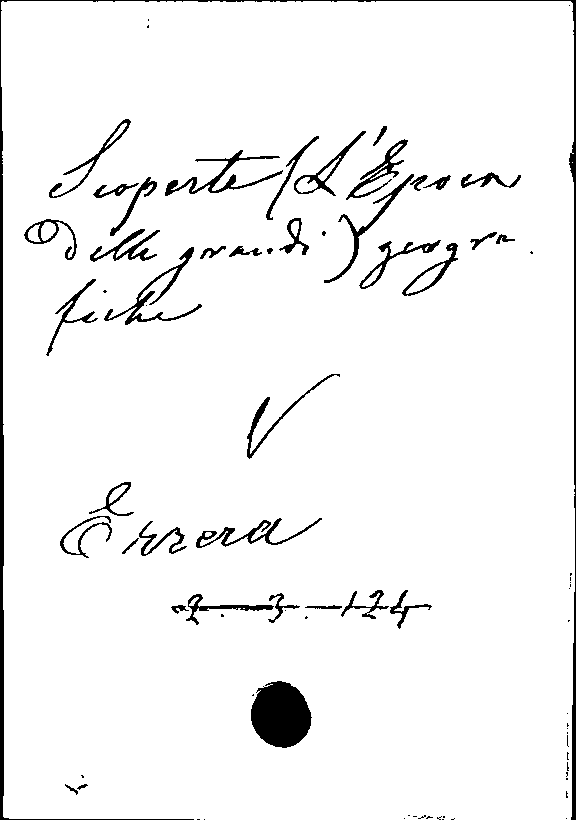 Scoperte (L'Epoca
delle grandi) geogra
fiche
V
Errera
2. 3. 124